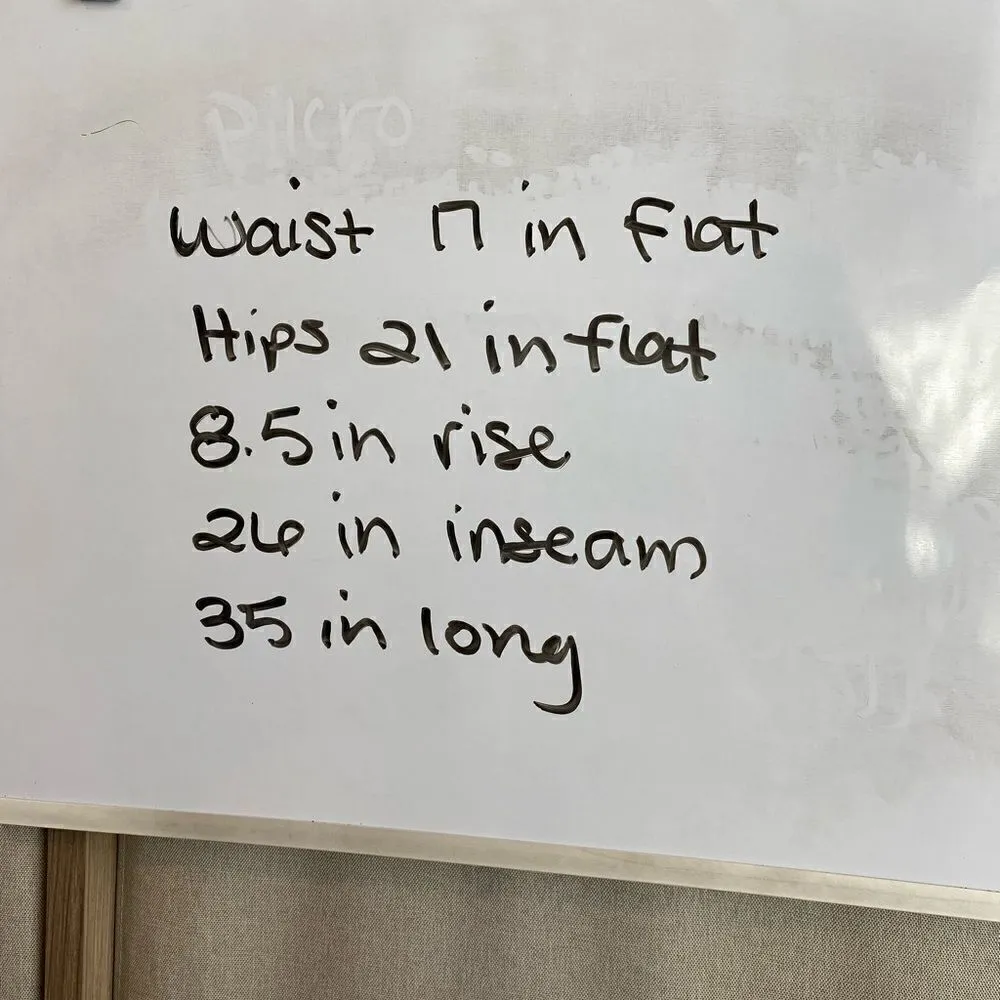 Pilcro
Waist 17 in flat
Hips 21 in flat
8.5 in rise
26 in inseam
35 in long